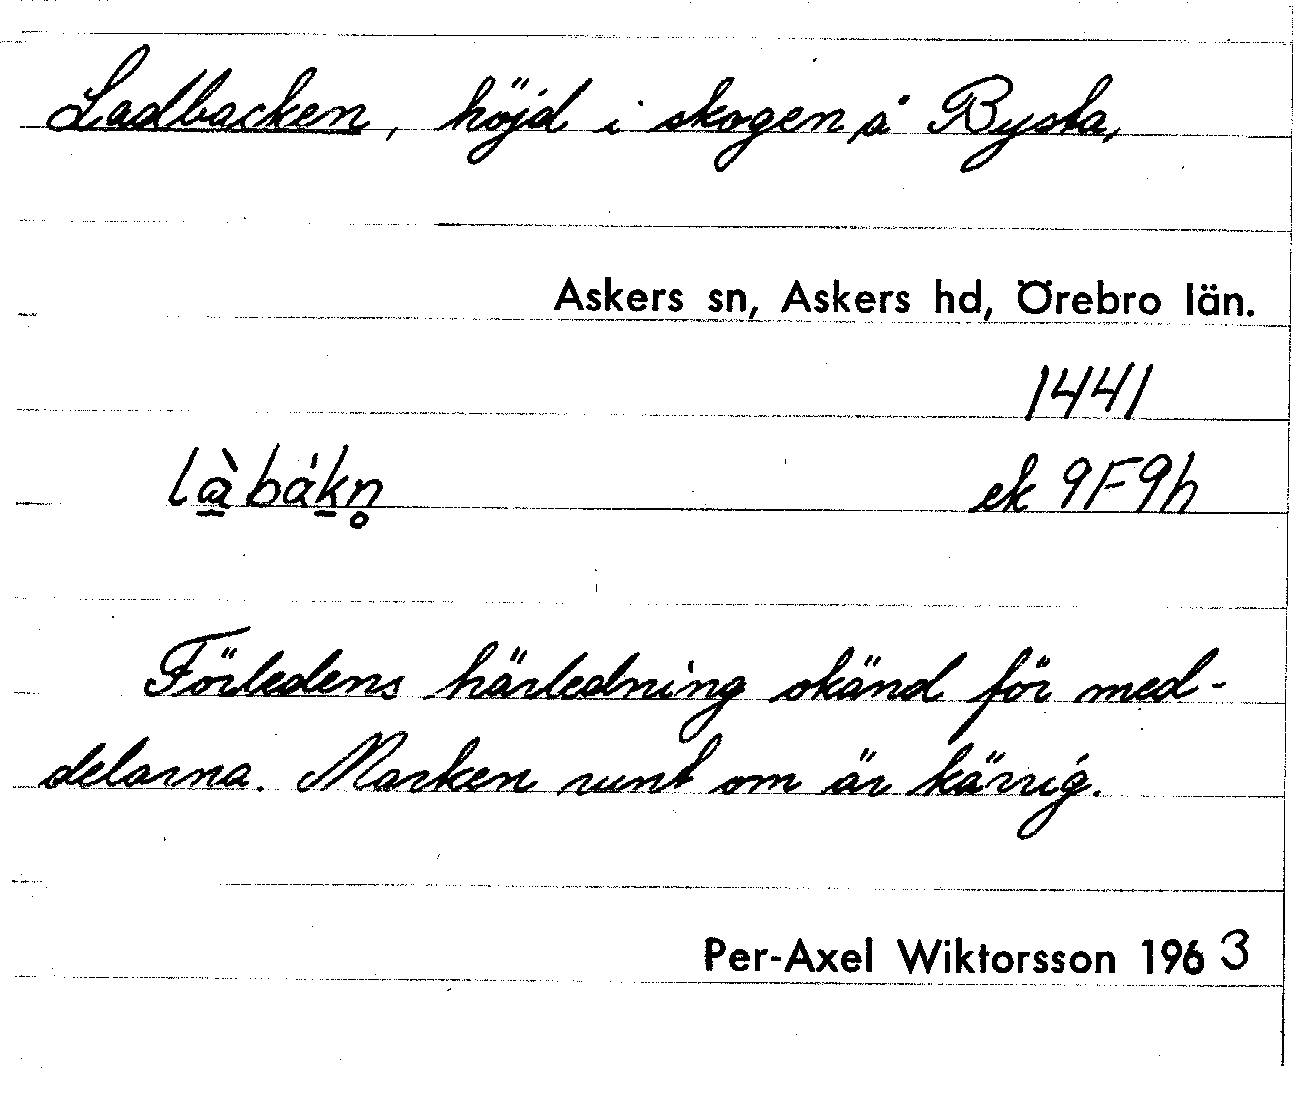 Ladbacken, höjd i skogen å Bysta,
Askers sn, Askers hd, Örebro län.
1441
là bákn̥
ek 9F9h
Förledens härledning okänd för med-
delarna. Marken runt om är kärrig.
Per-Axel Wiktorsson 1963